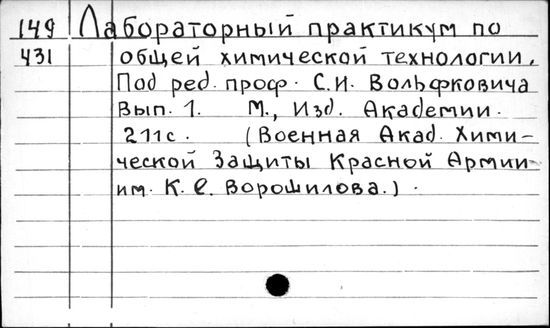 149 Лабораторный практикум по
431 общей химической технологии.
Под ред. проф. С.И. Вольфковича
Вып. 1. М., Изд. Академии.
211с. (Военная Акад. Хими-
ческой Защиты Красной Армии
им. К. Е. Ворошилова.).